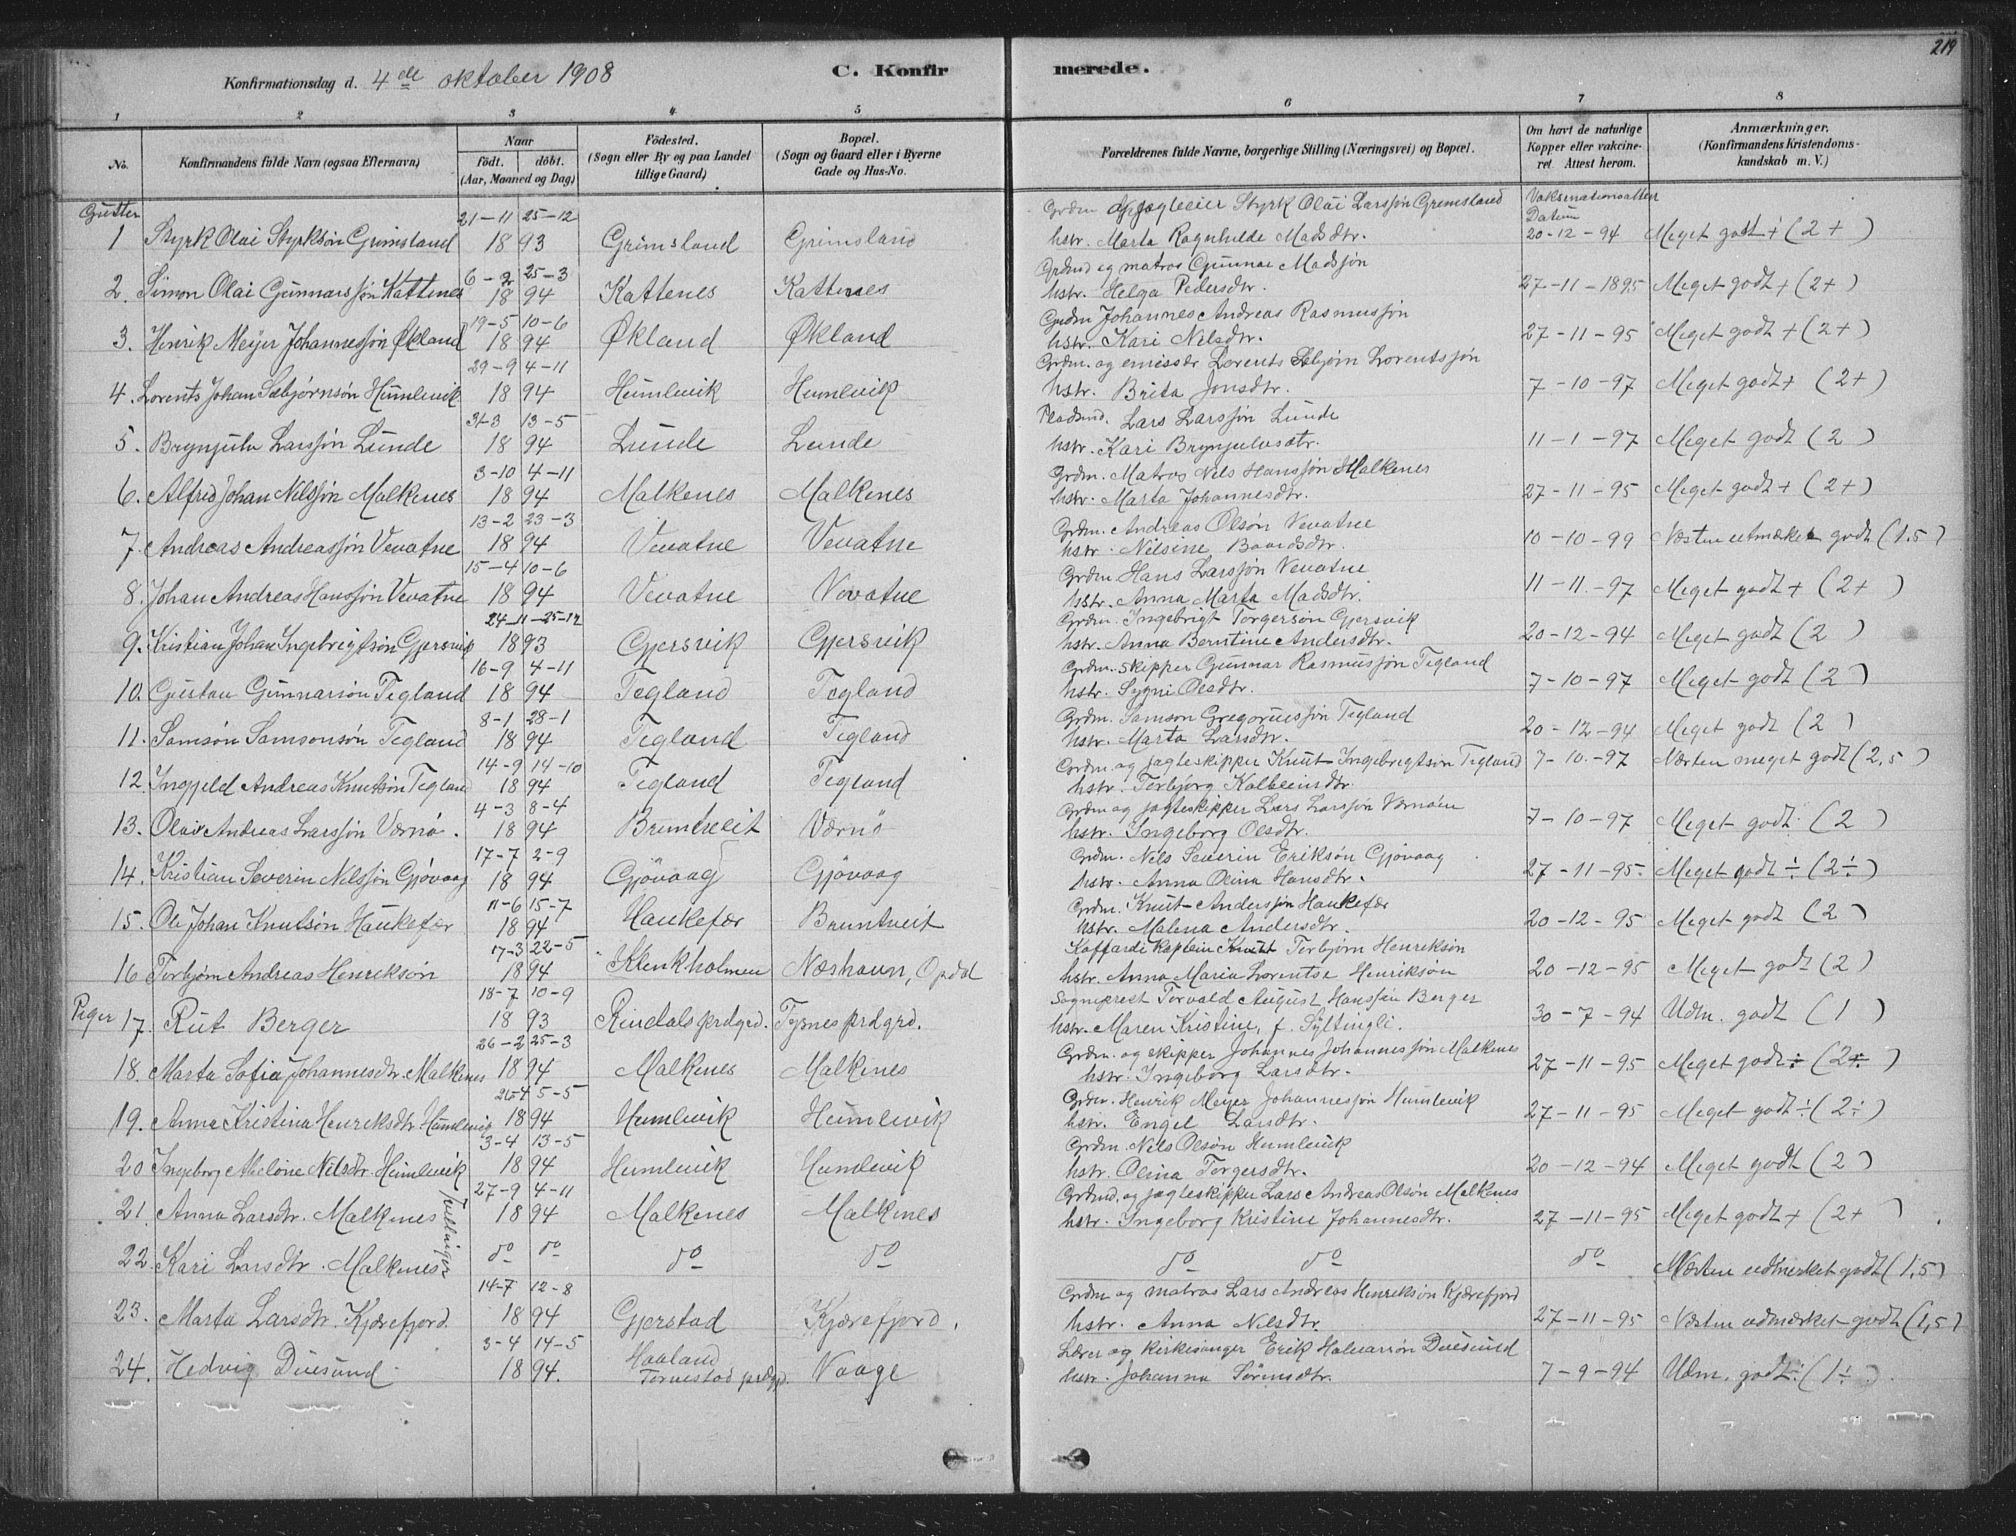 219
Konfirmationsdag d. 4de oktober 1908
C. Konfirmerede.
1 2 3 4 5 6 7 8
No.
Konfirmandens fulde Navn (ogsaa Efternavn)
Naar
født. døbt.
(Aar, Maaned og Dag)
Fødested.
(Sogn eller By og paa Landet
tillige Gaard)
Bopæl.
(Sogn og Gaard eller i Byerne
Gade og Hus-No.
Forældrenes fulde Navne, borgerlige Stilling (Næringsvei) og Bopæl.
Om havt de naturlige
Kopper eller vakcine-
ret Attest herom.
Anmærkninger.
(Konfirmandens Kristendoms-
kundskab m. V.)
Gutter 21-11 25-12 Styrk Olai Larssøn Grimsland
Datum
1 Styrk Olai Styrksøn Grimsland 18 93 Grimsland Grimsland hstr. Marta Ragnhilde Madsdtr. 20-12-94 Meget godt + (2+)
6-2 25-3 Grdmd og matros Gunnar Madssøn
2. Simon Olai Gunnarssøn Kattenes 18 94 Kattenes Kattenes hstr. Helga Pedersdtr. 27-11-1895 Meget godt + (2+)
19-5 10-6 Grdm Johannes Andreas Rasmussøn
3. Henrik Meyer Johannessøn Økland 18 94 Økland Økland hstr. Kari Nilsdtr. 27-11-95 Meget godt + (2+)
29-9 4-11 Grdm. og emissær Lorents Sebjørn Lorentssøn
4. Lorents Johan Sebjørnsøn Humlevik 18 94 Humlevik Humlevik hstr. Brita Jonsdtr. 7-10-97 Meget godt + (2+)
31-3 13-5 Pladsmd. Lars Larssøn Lunde
5. Brynjulv Larssøn Lunde 18 94 Lunde Lunde hstr. Kari Brynjulvsdtr. 11-1-97 Meget godt (2)
3-10 4-11 Grdm. Matros Nils Hanssøn Malkenes
6. Alfred Johan Nilssøn Malkenes 18 94 Malkenes Malkenes hstr. Marta Johannesdtr. 27-11-95 Meget godt + (2+)
13-2 23-3 Grdm. Andreas Olsøn Vevatne
7. Andreas Andreassøn Vevatne 18 94 Vevatne Vevatne hstr. Nilsine Baardsdtr. 10-10-99 Næsten utmærket godt (1.5)
15-4 10-6 Grdm Hans Larssøn Vevatne
8. Johan Andreas Hanssøn Vevatne 18 94 Vevatne Vevatne hstr. Anna Marta Madsdtr. 11-11-97 Meget godt + (2+)
24-11-25-12 Grdm. Ingebrigt Torgersøn Gjersvik
9. Kristian Johan Ingebrigtsøn Gjersvik 18 93 Gjersvik Gjersvik hstr. Anna Berntine Andersdtr. 20-12-94 Meget godt (2)
16-9 4-11 Grdm. Skipper Gunnar Rasmussøn Tegland
10. Gustav Gunnarsøn Tegland 18 94 Tegland Tegland hstr. Sygni Olsdtr. 7-10-97 Meget godt (2)
8-1 28-1 Grdm. Samson Gregoriussøn Tegland
11. Samsøn Samsonsøn Tegland 18 94 Tegland Tegland hstr. Marta Larsdtr. 20-12-94 Meget godt (2)
14-9 14-10 Grdm og jagteskipper Knut Ingebrigtsøn Tegland
12. Ingjeld Andreas Knutsøn Tegland 18 94 Tegland Tegland hstr. Torbjørg Kolbeinsdtr 7-10-97 Næsten meget godt (2,5)
4-3 8-4 Grdm og jagteskipper Lars Larssøn Værnøen
13. Olai Andreas Larssøn Værnø. 18 94 Bruntveit Værnö hstr. Ingeborg Olsdtr. 7-10-97 Meget godt. (2)
17-7 2-9 Grdm. Nils Severin Eriksøn Gjøvaag
14. Kristian Severin Nilssøn Gjøvaag 18 94 Gjøvaag Gjøvaag hstr. Anna Olina Hansdtr. 27-11-95. Meget godt ÷ (2÷)
11-6 15-7 Grdm. Knut Anderssøn Haukefær
15. Ole Johan Knutsøn Haukefær 18 94 Haukefær Bruntveit hstr. Malena Andersdtr. 20-12-95 Meget godt (2)
17-3 22-5 Koffardi Kaptein Torbjørn Henriksøn
16 Torbjørn Andreas Henriksøn 18 94 Klenkholmen Næshavn, Opdal hstr. Anna Maria Lorentse Henriksøn 20-12-95 Meget godt (2)
Piger 18-7 10-9 Sogneprest Torvald August Hanssøn Berger
17. Rut Berger 18 93 Rindals prdgrd. Tysnes prdgrd. hstr. Maren Kristine, f. Syltingli. 30-7-94 Udm. godt (1)
26-2 25-3 Grdm. og skipper Johannes Johannessøn Malkenes
18. Marta Sofia Johannesdtr. Malkenes 18 94 Malkenes Malkenes hstr. Ingeborg Larsdtr. 27-11-95 Meget godt ÷ (2÷)
26-4 5-5 Grdm. Henrik Meyer Johannessøn Humlevik
19. Anna Kristina Henriksdtr Humlevig 18 94 Humlevik Humlevik hstr. Engel Larsdtr. 27-11-95 Meget godt ÷ (2÷)
3-4 13-5 Grdm Nils Olsøn Humlevik
20 Ingeborg Nilsdtr. Humlevik 18 94 Humlevik Humlevik hstr. Olina Torgersdtr. 20-12-94 Meget godt (2)
27-9 4-11 Grdmd. og jagteskipper Lars Andreas Olsøn Malkenes
21. Anna Larsdtr. Malkenes 18 94 Malkenes Malkenes hstr. Ingeborg Kristine Johannesdtr. 27-11-95 Meget godt + (2+)
Tvillinger
22. Kari Larsdtr. Malkenes do do do do do do do Næsten udmerket godt (1,5)
14-7 12-8 Grdm og matros Lars Andreas Henriksøn Kjærefjord
23. Marta Larsdtr. Kjærefjord. 18 94 Gjerstad Kjærefjord. hstr. Anna Nilsdtr 27-11-95 Næsten udmærket godt (1,5)
3-4 14-5 Haaland Lærer og kirkesanger Erik Halvarsøn Duesund
24. Hedvig Duesund 18 94. prdgd. Vaage hstr. Johanna Sørensdtr. 7-9-94 Udm. godt ÷ (1÷)